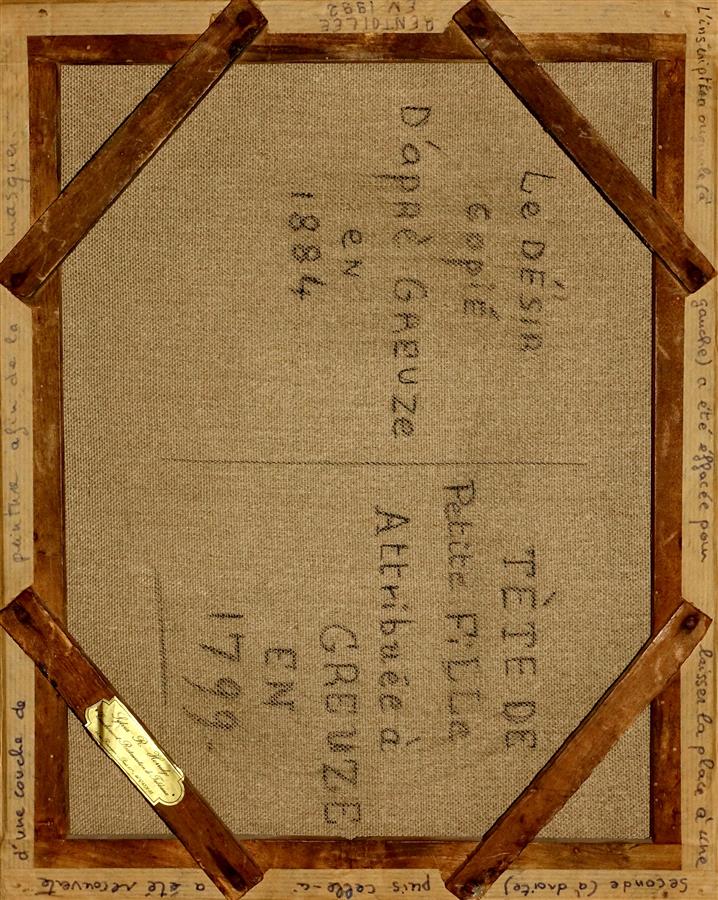 Le DÉSIR
Copié
D'aprè GREUZe
en
1884
TÊTE DE
Petite FiLLe
Attribuée à
GREUZE
EN
1799.
RENTOILÉE
EN 1992
L'inscription originale (à
gauche) a été éffacée pour
laisser la place à une
seconde (à droite)
puis celle-ci
a été recouverte
d'une couche de
peinture afin de la
masquer